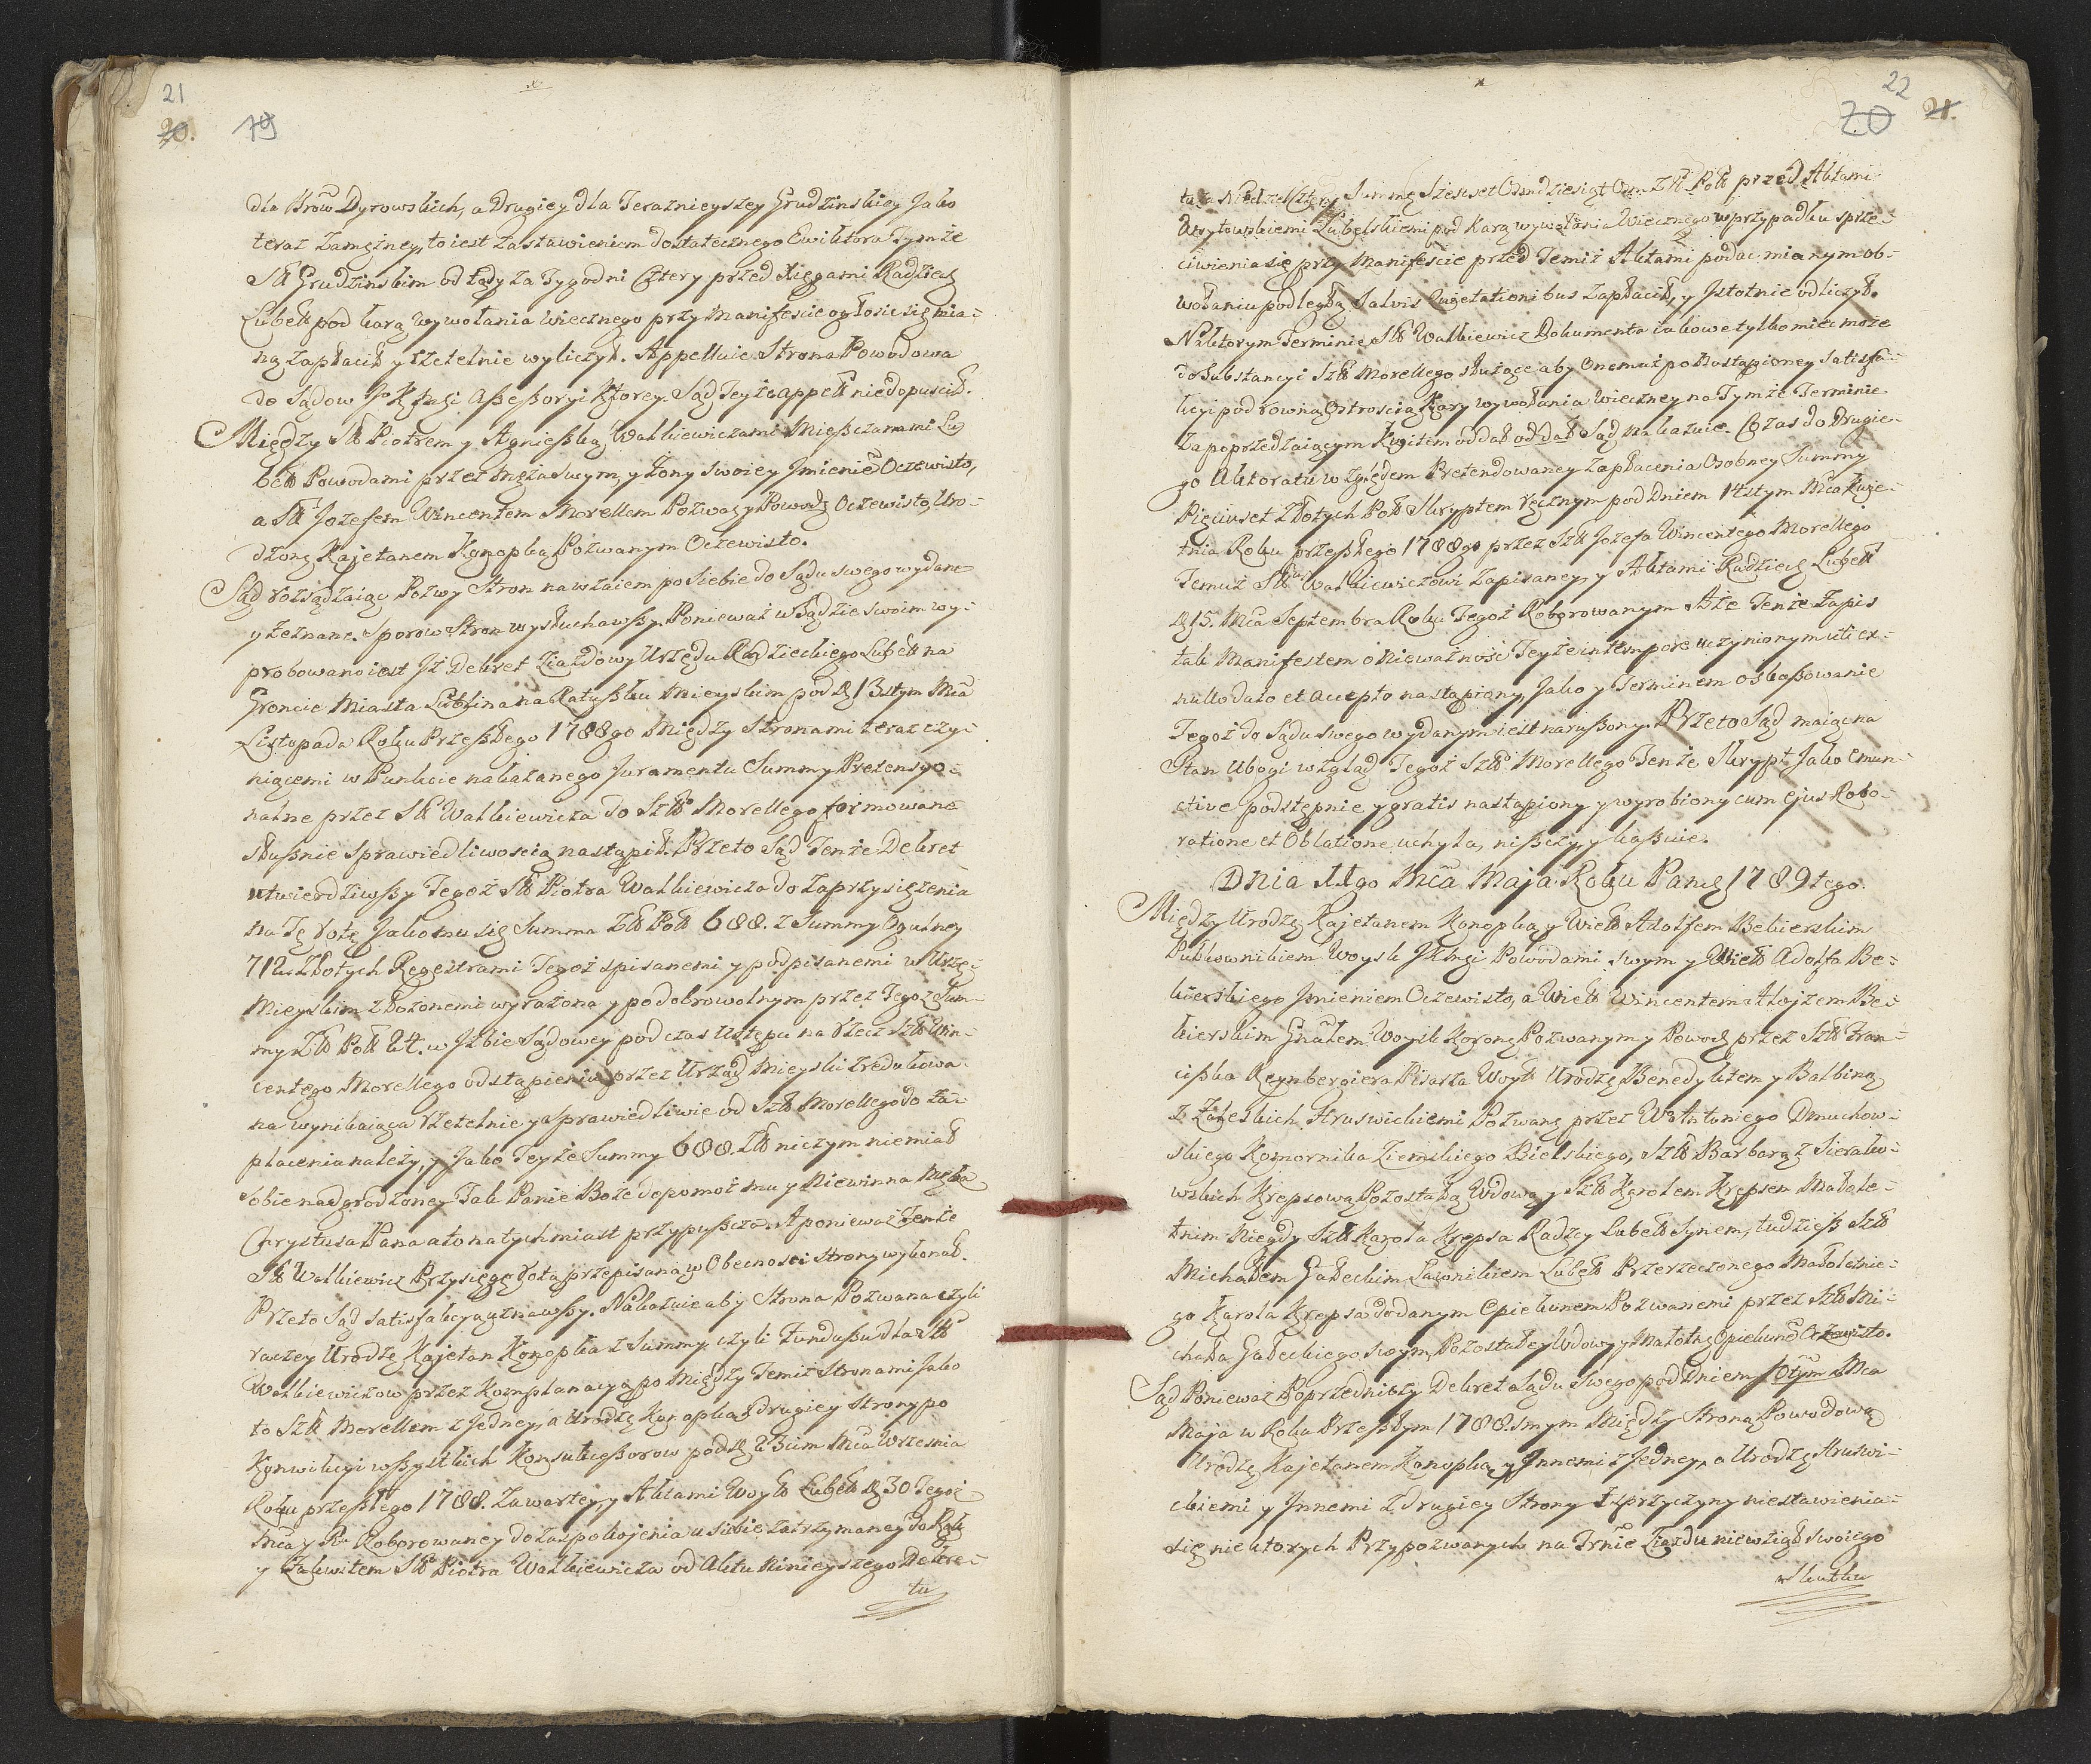 21
20. 19
dla Brow Dyrowskich, a Drugiey dla Teraznieyszey Grudzinskiey Jako
teraz zamęzney, to iest zastawieniem dostatecznego Ewiktora Tymże
Sł Grudzinskim od tądy za Tygodni Cztery przed Xięgami Radziec
Lubel pod karą wywołania wiecznego przy Manifescie ogłosic się mia-
ną zapłacił y rzetelnie wyliczył. Appelluie Strona Powodowa
do Sądow JoKMsci Assessoryi Ktorey Sąd Teyże appell niedopuscił.
Między Sł Piotrem y Agnieszką Walkiewiczami Mieszczanami Lu
bel Powodami przez męża swym, y Zony swoiey Jmieniē Oczewisto,
a Sł Jozefem Wincentem Morellem Pozwany Powodę Oczewisto, Uro-
dzonę Kajetanem Konopką Pozwanym Oczewisto.
Sąd rozsądzaiąc Pozwy Stron nawzaiem po Siebie do Sądu swego wydane
y zeznane. Sporow Stron wysłuchawszy. Ponieważ w Sądzie swoim wy-
probowano iest Jż Dekret Ziazdowy Urzędu Radzieckiego Lubel na
Groncie Miasta Lublina na Ratuszku Mieyskim pod d 13stym Mca
Listopada Roku Przeszłego 1788go Między Stronami teraz czy-
niącemi w Punkcie nakazanego Juramentu Summy Pretensyo-
nalne przez Sł Walkiewicza do Szlo Morellego formowane
słusznie sprawiedliwoscią nastąpił. Przeto Sąd Tenże Dekret
utwierdziwszy Tegoż Sł Piotra Walkiewicza do zaprzysiężenia
na Tę rotę Jako mu się Summa Zł Pol 688. z Summy Ogulney
712 Złotych Regestrami Tegoż spisanemi y podpisanemi w Urzę-
Mieyskim złożonemi wyrażona y podobrowolnym przez Tegoż Sum-
my Zł Pol 24. w Jzbie Sądowey podczas Ustępu na rzecz Szl Win-
centego Morellego odstąpieniu przez Urząd Mieyski zredukowa-
na wynikaiąca rzetelnie y sprawiedliwie od Szl Morellego do za-
płacenia należy, y Jako Teyże Summy 688. Zł niczym niemiał
sobie nadgrodzoney Tak Panie Boże dopomoż mu y Niewinna Męka
Chrystusa Pana a to natychmiast przypuszcza. A ponieważ Tenże
Sł Walkiewicz Przysięgę rotą przepisaną w Obecnosci Strony wykonał.
Przeto Sąd satisfakcyą uznawszy. Nakazuie aby Strona Pozwana czyli
raczey Urodzę Kajetan Konopka z Summy czyli Funduszu dla Sł
Walkiewiczow przez Komplanacyą po Między Temiż Stronami Jako
to Szl Morellem z Jedney, a Urodzę Konopką z drugiey Strony po
Konwikcyi wszystkich Konsukcessorow pod d 23cim Mca Wrzesnia
Roku przeszłego 1788. Zawartey, y Aktami Woyt Lubel d 30 Tegoż
Mca y Ru Roborowaney do zaspokojenia u siebie zatrzymaney do Rąk
y Zakwitem Sł Piotra Walkiewicza od Aktu Ninieyszego Dekre-
tu
22
20 21.
ta za Niedziel Cztery Summę Szescset Osmdziesiąt Osm Zł Pol przed Aktami
Woytowskiemi Lubelskiemi pod Karą wywołania Wiecznego w przypadku sprze-
ciwienia się przy Manifescie przed Temiż Aktami podac mianym ob-
wołaniu podległą. Salvis Quietationibus zapłacił, y Jstotnie odliczył.
Na Ktorym Terminie Sł Walkiewicz Dokumenta iakowe tylko miec może
do Substancyi Szl Morellego służące aby Onemuż po Nastąpioney Satisfa-
kcyi pod rowną Ostroscią Kary wywołania Wieczney na Tymże Terminie
Za poprzedzaiącym Kwitem oddał oddał Sąd Nakazuie. Czas do Drugie-
go Aktoratu względem Pretendowaney Zapłacenia Osobney Summy
Pięciuset Złotych Pol Skryptem ręcznym pod Dniem 14stym Mca Kwie-
tnia Roku przeszłego 1788go przez Szl Jozefa Wincentego Morellego
Temuż Sł Walkiewiczowi Zapisaney, y Aktami Radziec Lubel
d 15. Mca Septembra Roku Tegoż Roborowanym. Aże Tenże Zapis
tak Manifestem o Nieważnosci Teyże in tempore uczynionym uti ex-
nullo dato et accepto nastąpiony, Jako y Terminem o Skassowanie
Tegoż do Sądu swego wydanym iest naruszony. Przeto Sąd maiąc na
Stan Ubogi wzgląd Tegoż Szlo Morellego Tenże Skrypt Jako emun-
ctive podstępnie y gratis nastąpiony y wyrobiony cum ejus Robo-
ratione et Oblatione uchyla, niszczy, y kassuie.
Dnia 11go Mca Maja Roku Pans 1789tego.
Między Urodzę Kajetanem Konopką y Wiel Adolfem Bekierskim
Pułkownikiem Woysk JKMsci Powodami swym y Wiel Adolfa Be-
kierskiego Jmieniem Oczewisto, a Wiel Wincentem Alojzem Be-
kierskim Gnałem Woysk Koronę Pozwanym y Powodę przez Szl Fran-
ciszka Reynbergiera Pisarza Woyt Urodzę Benedyktem y Balbiną
z Zaleskich Hruswickiemi Pozwanę przez W Antoniego Dmuchow-
skiego Komornika Ziemskiego Bielskiego, Szl Barbarą z Sierako-
wskich Krepsową Pozostałą Wdową y Szl Karolem Krepsem Małole-
tnim Niegdy Szl Karola Krepsa Radzcy Lubel Synem, tudziesz Szl
Michałem Gałeckim Ławnikiem Lubel Przerzeczonego Małoletnie-
go Karola Krepsa dodanym Opiekunem Pozwanemi przez Szl Mi-
chała Gałeckiego swym, Pozostałey Wdowy y Małoltę Opiekunē Oczewisto.
Sąd Ponieważ Poprzedniczy Dekret Sądu Swego pod Dniem 10tym Mca
Maja w Roku Przeszłym 1788smym Między Stroną Powodową
Urodzę Kajetanem Konopką y Jnnemi z Jedney, a Urodzę Hruswi-
ckiemi y Jnnemi z drugiey Strony z przyczyny niestawienia-
się niektorych Przypozwanych na Trnie Ziazdu niewziął swoiego
Skutku